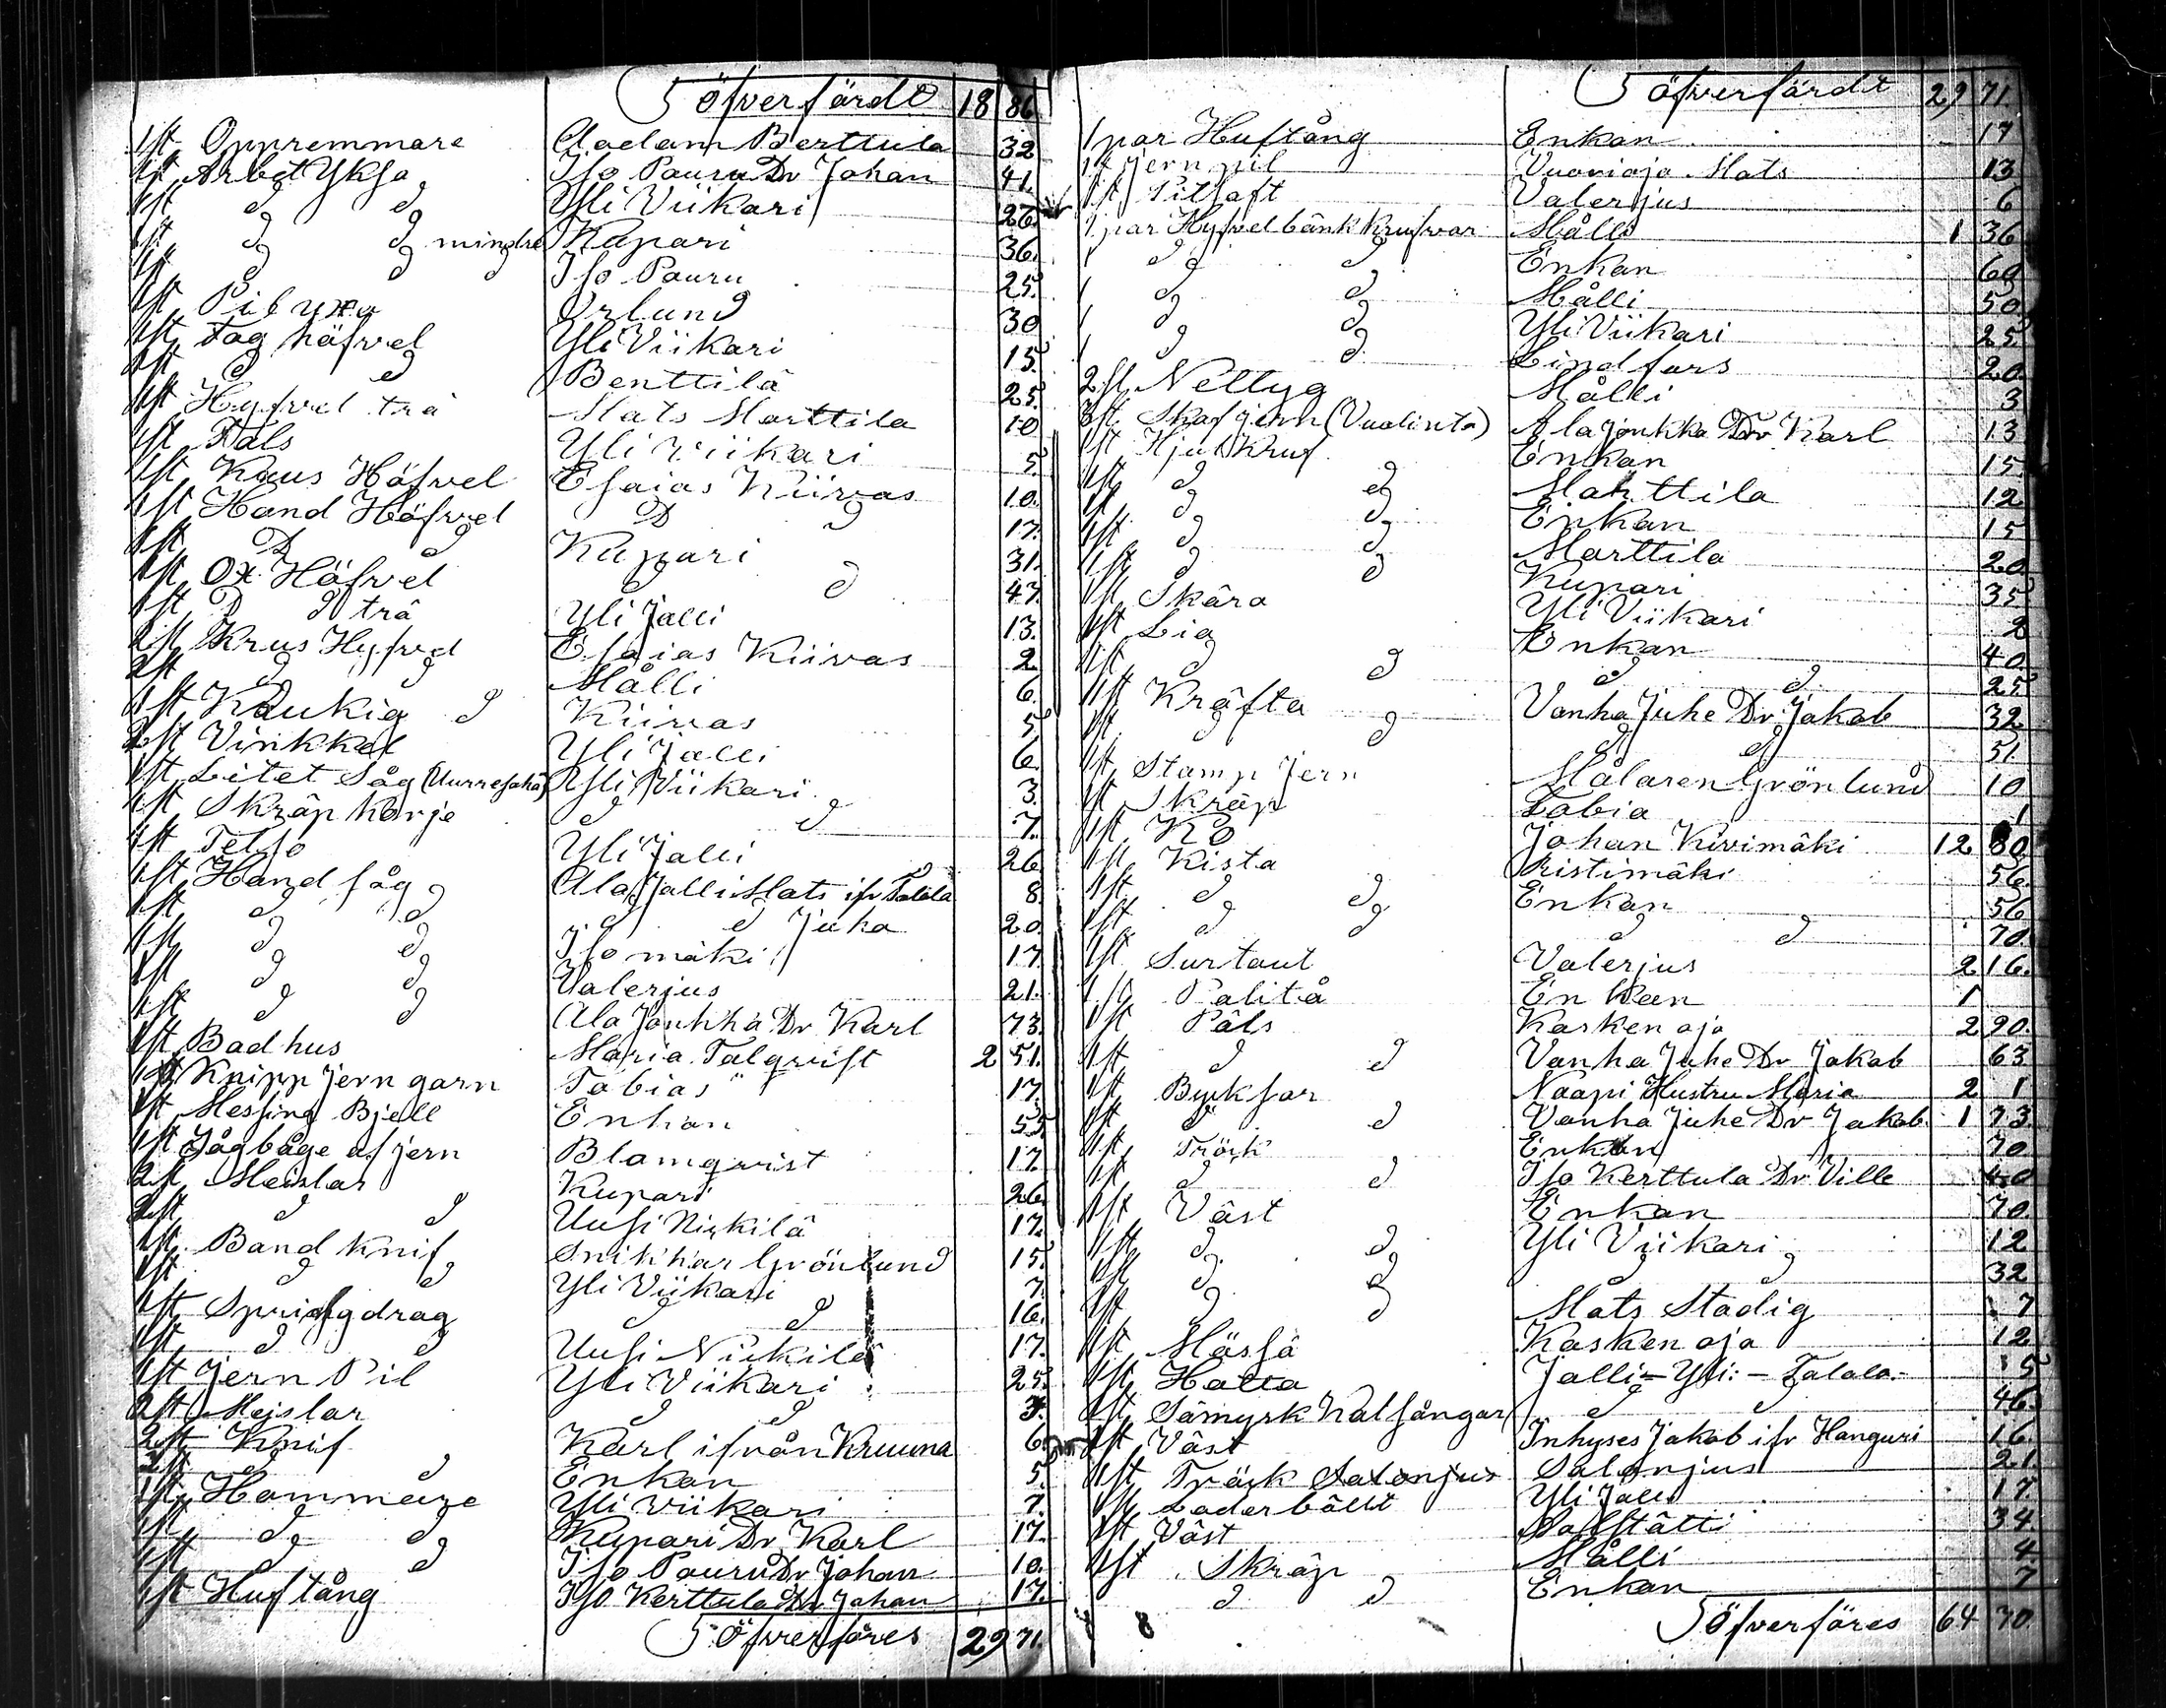 öfverfördt 18 86
1 st Oppremmare Aadam Berttula 32
1 st Arbet Yksa Iso Pauru Dr Johan 41.
1 st d d Yli Viikari 26.
1 st d d mindre Kupari 36.
1 st d d d Iso Pauru 25.
1 st Pil yxa Orlund 30
1 st Tag häfvel Yli Viikari 15.
1 st d d Benttilä 25.
1 st Hyfvel trä Mats Marttila 10
1 st Fals Yli Viikari 5.
1 st Kaus Höfvel Esaias Kiivas 10.
1 st Hand Höfvel D d 17.
1 st D d Kupari 31.
1 st Ox Höfvel d d 47.
1 st D d trä Yli Jalli 13.
2 st Krus Hyfvel Esaias Kiivas 2
2 st d d Målli 6.
1 st Kaukig d Kiivas 5.
2 st Vinkkel Yli Jalli 6.
1 st Litet Såg (Uurresaha) Yli Viikari 3.
1 st Skräp korje d d 7.
1 st Telso Yli Jalli 26
1 st Hand såg Ala Jalli Mats ifr Talala 8.
1 st d d d d Juka 20.
1 st d d Iso mäki 17.
1 st d d Valerjus 21.
1 st d d Ala Jonkka Dr Karl 73.
1 st Bad hus Maria Talqvist 2 51.
1 st Knipp Jern garn Tobias " 17.
1 st Messing Bjell Enkan 55.
1 st Sågbåge af jern Blomqvist 17.
2 st Meislar Kupari 26.
2 st d d Uusi Nikkilä 17.
1 st Band Knif Snikkar Grönlund 15.
1 st d d Yli Viikari 7.
1 st Springdrag d d 16.
1 st d d Uusi Nikkilä 17.
1 st Jern Pil Yli Viikari 25.
2 st Mejslar d d 7.
2 st Knif Karl ifrån Kruuna 6
2 st d d Enkan 5.
1 st Hammare Yli Viikari 7.
1 st d d Kupari Dr Karl 17.
1 st d d Iso Pauru Dr Johan 10.
1 st Huftång Iso Kerttula Dr Johan 17.
öfverföres 29 71.
öfverfördt 29 71.
1 par Huftång Enkan 17
1 st jern pil Vuorioja Mats 13
1 st Pilsaft Valerjus 6
1 par Hyfvelbänk Krufvar Målli 1 36
1 d d Enkan 60
1 d d Målli 50.
1 d d Yli Viikari 25
1 d d Lindfors 20.
2 st Neltyg Målli 3
3 st Skafjern (Vuolinta) Ala Jonkka Dr Karl 13
1 st Hjul Kruf Enkan 15
1 st d d Marttila 12
1 st d d Enkan 15
1 st d d Marttila 20.
1 st d d Kupari 35
1 st Skära Yli Viikari 2
1 st Lia Enkan 40
1 st d d d d 25
1 st Kräfta Vanha Juhe Dr Jakob 32
1 st d d d d 51.
1 st Stamp Jern Målaren Grönlund 10
1 st Skräp Tobia 1
1 st Ko Johan Kivimäki 12 80.
1 st Kista Ristimäki 56.
1 st d d Enkan 56
1 st d d d d 70.
1 st Surtout Valerjus 2 16.
1 st Palitå Enkan 1
1 st Päls Kasken oja 2 90.
1 st d d Vanha Juhe Dr Jakob 63
1 st Byksor Naapi Hustru Maria 2 1
1 st d d Vanha Juhe Dr Jakob 1 73.
1 st Tröck Enkan 70
1 st d d Iso Kerttula Dr Ville 40
1 st Väst Enkan 70.
1 st d d Yli Viikari 12
1 st d d d d 32
1 st d d Mats Stadig 7
1 st Mässä Kasken oja 12
1 st Hatta Jalli - Yli: - Talala.- 5
1 st Sämysk Kalsångar d d 46.
1 st Väst Inhyses Jakob ifr Hanguri 16
1 st Träck Salonjus Salonjus 21.
1 st Läderbällt Yli Jalli 17.
1 st Väst 34.
1 st Skräp Målli 4.
d d Enkan 7
öfverföres 64 70.